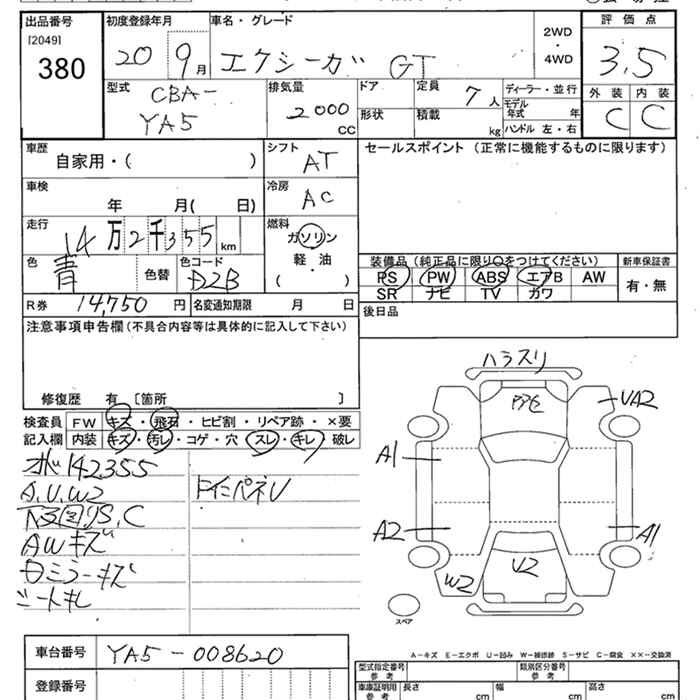 出品番号 初度登録年月 車名・グレード 2WD・4WD 評価点
[2049]
380 20 9月 エクシーガ GT 3,5
型式 排気量 ドア 定員 ディーラー・並行 外装 内装
CBA-YA5 2000CC 形状 7人 積載 kg モデル年式 年 ハンドル 左・右 C C
車歴 シフト セールスポイント (正常に機能するものに限ります)
自家用・( ) AT
車検 冷房
年 月( 日) AC
走行 燃料
14万2千355km ガソリン
軽・油
( ・ )
色 色替 色コード
青 D2B
装備品(純正品に限り○をつけてください) 新車保証書
PS PW ABS エアB AW 有・無
SR ナビ TV カワ
R券 14,750円 名変通知期限 月 日
後日品
注意事項申告欄(不具合内容等は具体的に記入して下さい)
修復歴 有 [箇所 ]
検査員 FW キズ・飛石・ヒビ割・リペア跡・×要
記入欄 内装 キズ・汚レ・コゲ・穴・スレ・キレ・破レ
142355
A.U.W2
下回りS.C
AWキズ
Dミラーキズ
シートキレ
ハラスリ
UA2
A1
A2
A1
W2
U2
スペア
A-キズ E-エクボ U-凹み W-補修跡 S-サビ C-腐食 ××-交換済
車台番号 YA5-008620
登録番号
型式指定番号 参考 類別区分番号 参考
車庫証明用 参考 長さ cm 幅 cm 高さ cm